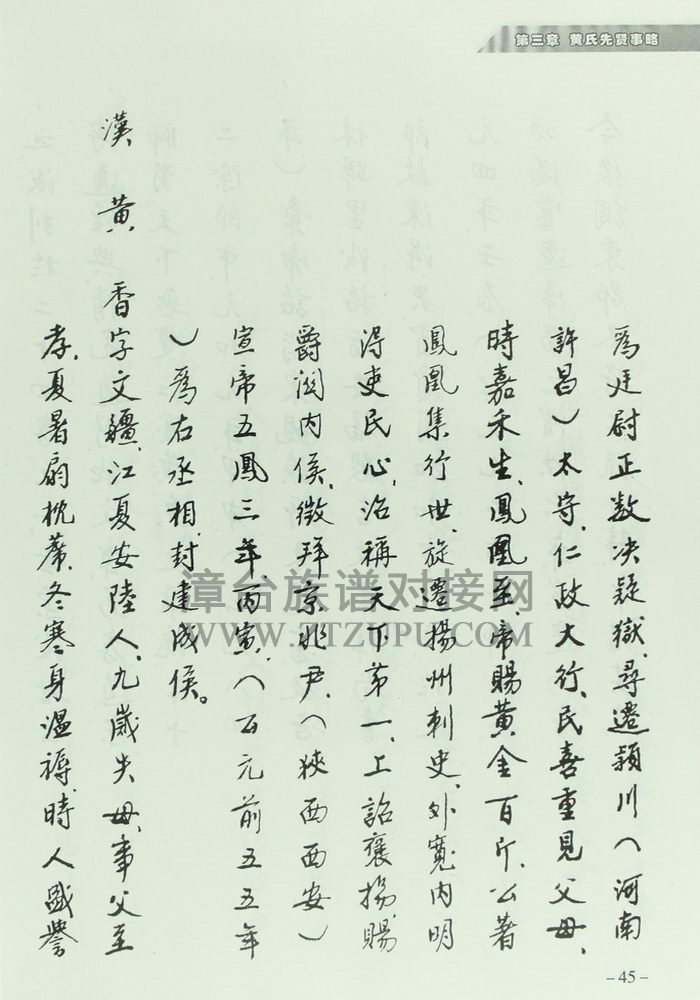 第三章 黄氏先贤事略
為廷尉正数决疑獄、尋遷穎川(河南
許昌)太守、仁政大行、民喜重見父母、
時嘉禾生、鳳凰至、帝賜黄金百斤、公著
鳳凰集行世、旋遷揚州刺史、外寬内明
得吏民心、治稱天下第一、上詔褒揚、賜
爵関内侯、徵拜京兆尹、(狹西西安)
宣帝五鳳三年丙寅、(公元前五五年
)為右丞相、封建成侯。
漢 黄 香字文疆、江夏安陸人、九歲失母、事父至
孝、夏暑扇枕蓆、冬寒身温褥、時人盛譽
漳台族谱对接网
WWW.ZTZUPU.COM
–45–